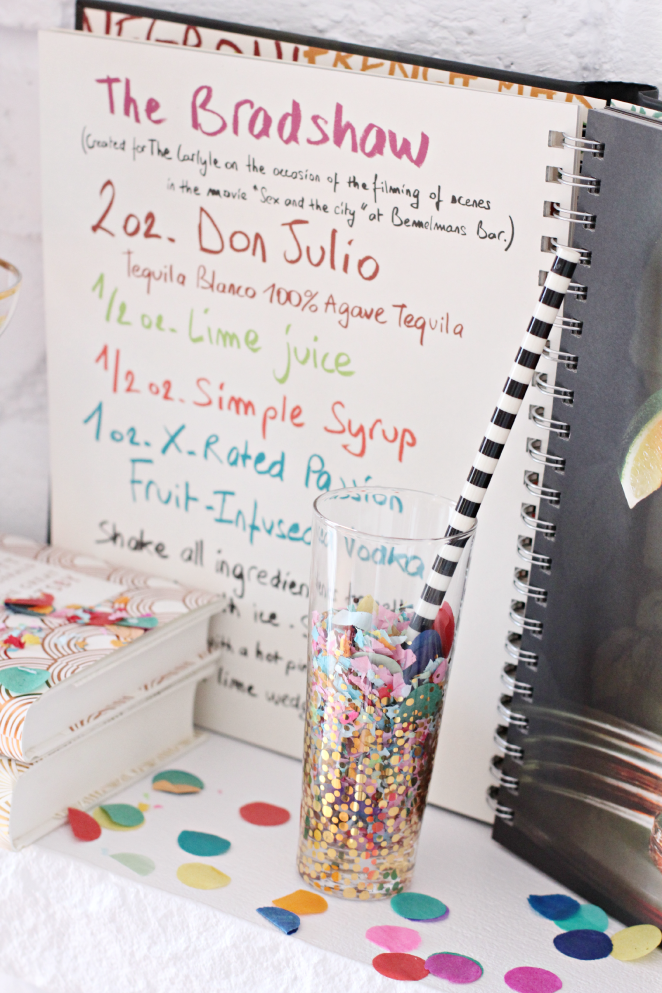 The Bradshaw
(Created for The Carlyle on the occasion of the filming of scenes
in the movie "Sex and the city" at Bemelmans Bar.)
2 oz. Don Julio
Tequila Blanco 100% Agave Tequila
1/2 oz. Lime juice
1/2 oz. Simple Syrup
1 oz. X-Rated Passion
Fruit-Infused Vodka
Shake all ingredien
ice.
with a hot
lime wedg